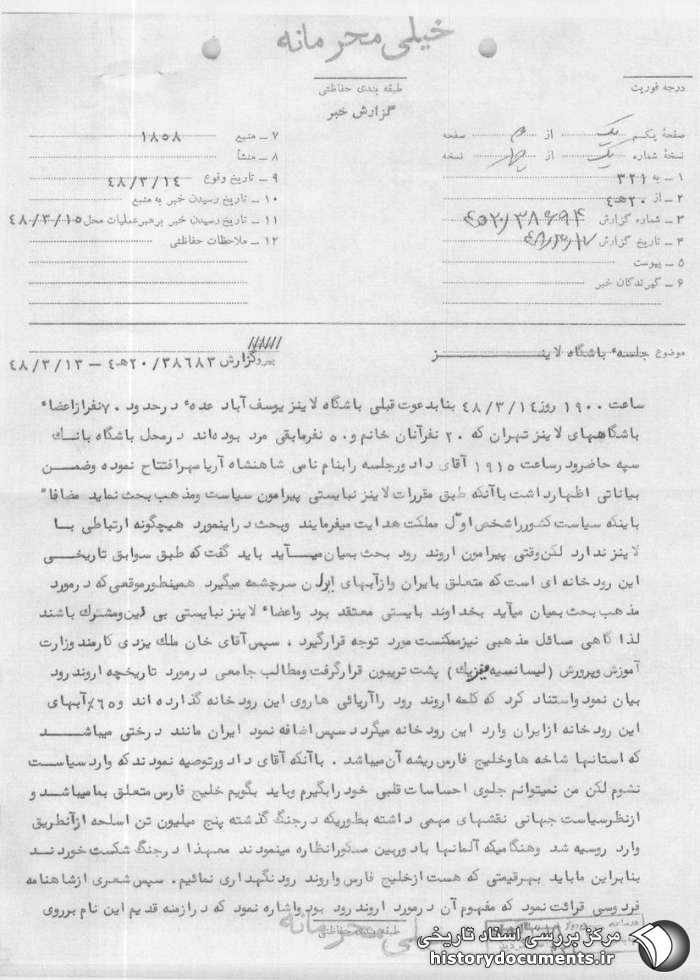 خیلی محرمانه
درجه فوریت
طبقه بندی حفاظتی
گزارش خبر
صفحهٔ یکم یک از صفحه
نسخهٔ شماره یک از چهار نسخه
۱ ـ به ۳۲۱
۲ ـ از ۲۰ه۴
۳ ـ شماره گزارش
۴ ـ تاریخ گزارش
۵ ـ پیوست
۶ ـ گیرندگان خبر
۷ ـ منبع ۱۸۵۸
۸ ـ منشأ
۹ ـ تاریخ وقوع ۴۸/۳/۱۴
۱۰ ـ تاریخ رسیدن خبر به منبع
۱۱ ـ تاریخ رسیدن خبر برهبرعملیات محل ۴۸/۳/۱۵
۱۲ ـ ملاحظات حفاظتی
موضوع جلسهٔ باشگاه لاینز
پیرو گزارش ۳۸۶۸۳/۲۰ه۴ – ۴۸/۳/۱۳
ساعت ۱۹۰۰ روز ۴۸/۳/۱۴ بنابدعوت قبلی باشگاه لاینز یوسف آباد عدهٔ درحدود ۷۰نفرازاعضاء
باشگاههای لاینز تهران که ۲۰ نفرآنان خانم و ۵۰ نفرمابقی مرد بوده‌اند درمحل باشگاه بانک
سپه حاضرود رساعت ۱۹۱۵ آقای داد ورجلسه رابنام نامی شاهنشاه آریامهرافتتاح نموده وضمن
بیاناتی اظهارداشت باآنکه طبق مقررات لاینز نبایستی پیرامون سیاست ومذهب بحث نماید مضافاً
باینکه سیاست کشورراشخص اول مملکت هدایت میفرمایند وبحث دراینمورد هیچگونه ارتباطی با
لاینز ندارد لکن وقتی پیرامون اروند رود بحث بمیان میآید باید گفت که طبق سوابق تاریخی
این رودخانه ای است که متعلق بایران وازآبهای ایران سرچشمه میگیرد همینطورموقعی که درمورد
مذهب بحث بمیان میآید بخداوند بایستی معتقد بود واعضاء لاینز نبایستی بی دین ومشترک باشند
لذا گاهی مسائل مذهبی نیزممکنست مورد توجه قرارگیرد ، سپس آقای خان ملک یزدی کارمند وزارت
آموزش وپرورش (لیسانسیه فیزیک) پشت تریبون قرارگرفت ومطالب جامعی درمورد تاریخچه اروند رود
بیان نمود واستناد کرد که کلمه اروند رود راآریائی هاروی این رودخانه گذارده اند و ۶۵٪آبهای
این رودخانه ازایران وارد این رودخانه میگردد سپس اضافه نمود ایران مانند درختی میباشد
که استانها شاخه هاوخلیج فارس ریشه آن میباشد . باآنکه آقای داد ورتوصیه نمودند که وارد سیاست
نشوم لکن من نمیتوانم جلوی احساسات قلبی خود رابگیرم وباید بگویم خلیج فارس متعلق بمامیباشد و
ازنظرسیاست جهانی نقشهای مهمی داشته بطوریکه درجنگ گذشته پنج میلیون تن اسلحه ازآنطریق
وارد روسیه شد وهنگامیکه آلمانها بادوربین مسکورانظاره مینمودند معهذا درجنگ شکست خوردند
بنابراین مابایدبهرقیمتی که هست ازخلیج فارس واروند رود نگهداری نمائیم. سپس شعری ازشاهنامه
فردوسی قرائت نمود که مفهوم آن درمورد اروند رود بود واشاره نمود که درازمنه قدیم این نام برروی
طبقه بندی حفاظتی
خیلی محرمانه
مرکز بررسی اسناد تاریخی
historydocuments.ir